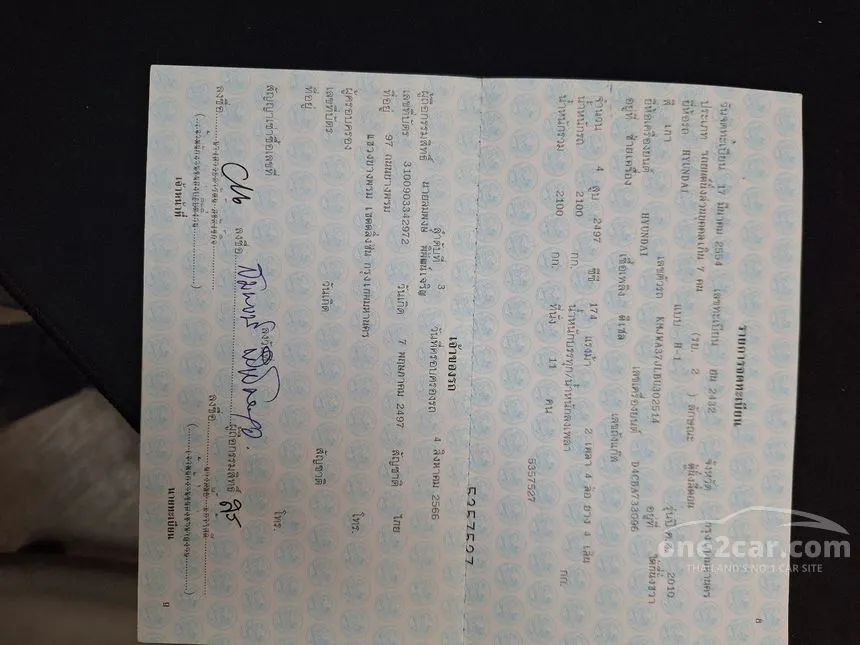 8
รายการจดทะเบียน
วันจดทะเบียน 17 มีนาคม 2554 เลขทะเบียน ฮห 2432 จังหวัด กรุงเทพมหานคร
ประเภท รถยนต์นั่งส่วนบุคคลเกิน 7 คน (รย. 2 ) ลักษณะ ตู้นั่งสี่ตอน
ยี่ห้อรถ HYUNDAI แบบ H-1 รุ่นปี ค.ศ. 2010
สี เทา เลขตัวรถ อยู่ที่
ยี่ห้อเครื่องยนต์ HYUNDAI เลขเครื่องยนต์
อยู่ที่ เชื้อเพลิง ดีเซล เลขถังแก๊ส
จำนวน 4 สูบ 2497 ซีซี 174 แรงม้า 2 เพลา 4 ล้อ ยาง 4 เส้น
น้ำหนักรถ 2100 กก. น้ำหนักบรรทุก/น้ำหนักลงเพลา กก.
น้ำหนักรวม 2100 กก. ที่นั่ง 11 คน
5357527
5357527
เจ้าของรถ
ลำดับที่ 3 วันที่ครอบครองรถ 4 สิงหาคม 2566
ผู้ถือกรรมสิทธิ์
เลขที่บัตร 3100903342972 วันเกิด 7 พฤษภาคม 2497 สัญชาติ ไทย
ที่อยู่ 97 ถนนบางพรม โทร.
แขวงบางพรม เขตตลิ่งชัน กรุงเทพมหานคร
ผู้ครอบครอง
เลขที่บัตร วันเกิด สัญชาติ
ที่อยู่ โทร.
สัญญาเช่าซื้อเลขที่
ลงชื่อ ผู้ถือกรรมสิทธิ์
ลงชื่อ ลงชื่อ
เจ้าหน้าที่ นายทะเบียน
9
one2car.com
THAILAND'S NO.1 CAR SITE